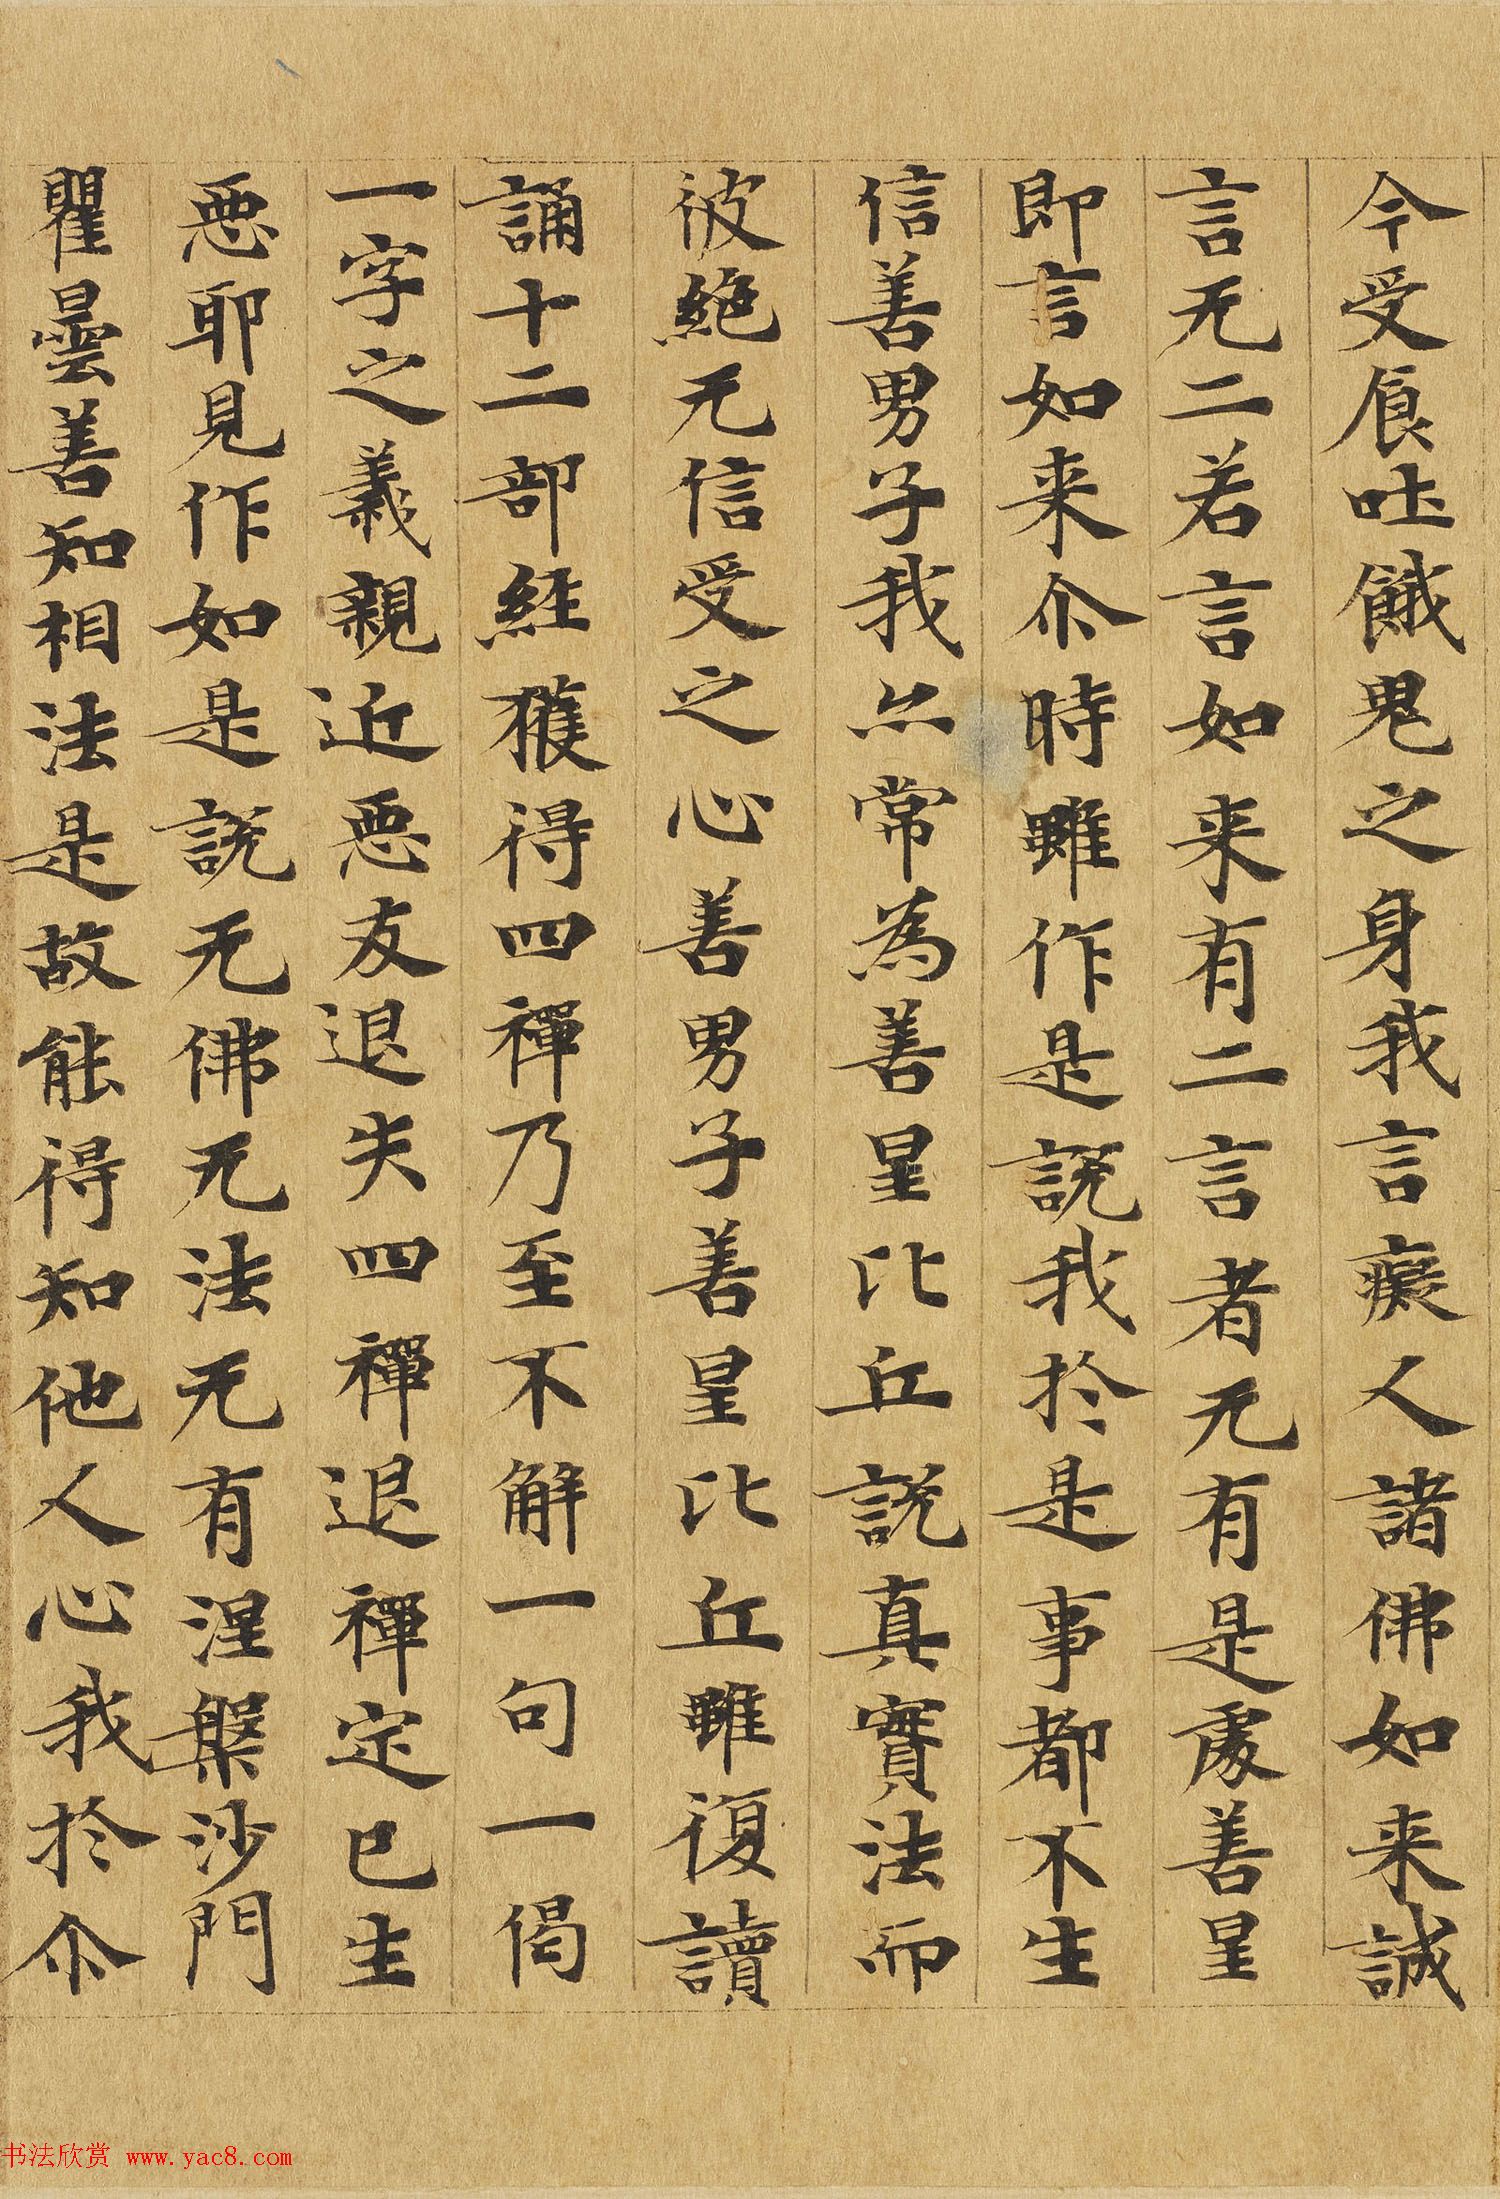 今受食吐餓鬼之身我言癡人諸佛如来誠
言无二若言如来有二言者无有是處善星
即言如来尒時雖作是說我於是事都不生
信善男子我亦常為善星比丘說真實法而
彼絕无信受之心善男子善星比丘雖復讀
誦十二部經獲得四禪乃至不解一句一偈
一字之義親近惡友退失四禪退禪定已生
惡耶見作如是說无佛无法无有涅槃沙門
瞿曇善知相法是故能得知他人心我於尒
书法欣赏 www.yac8.com